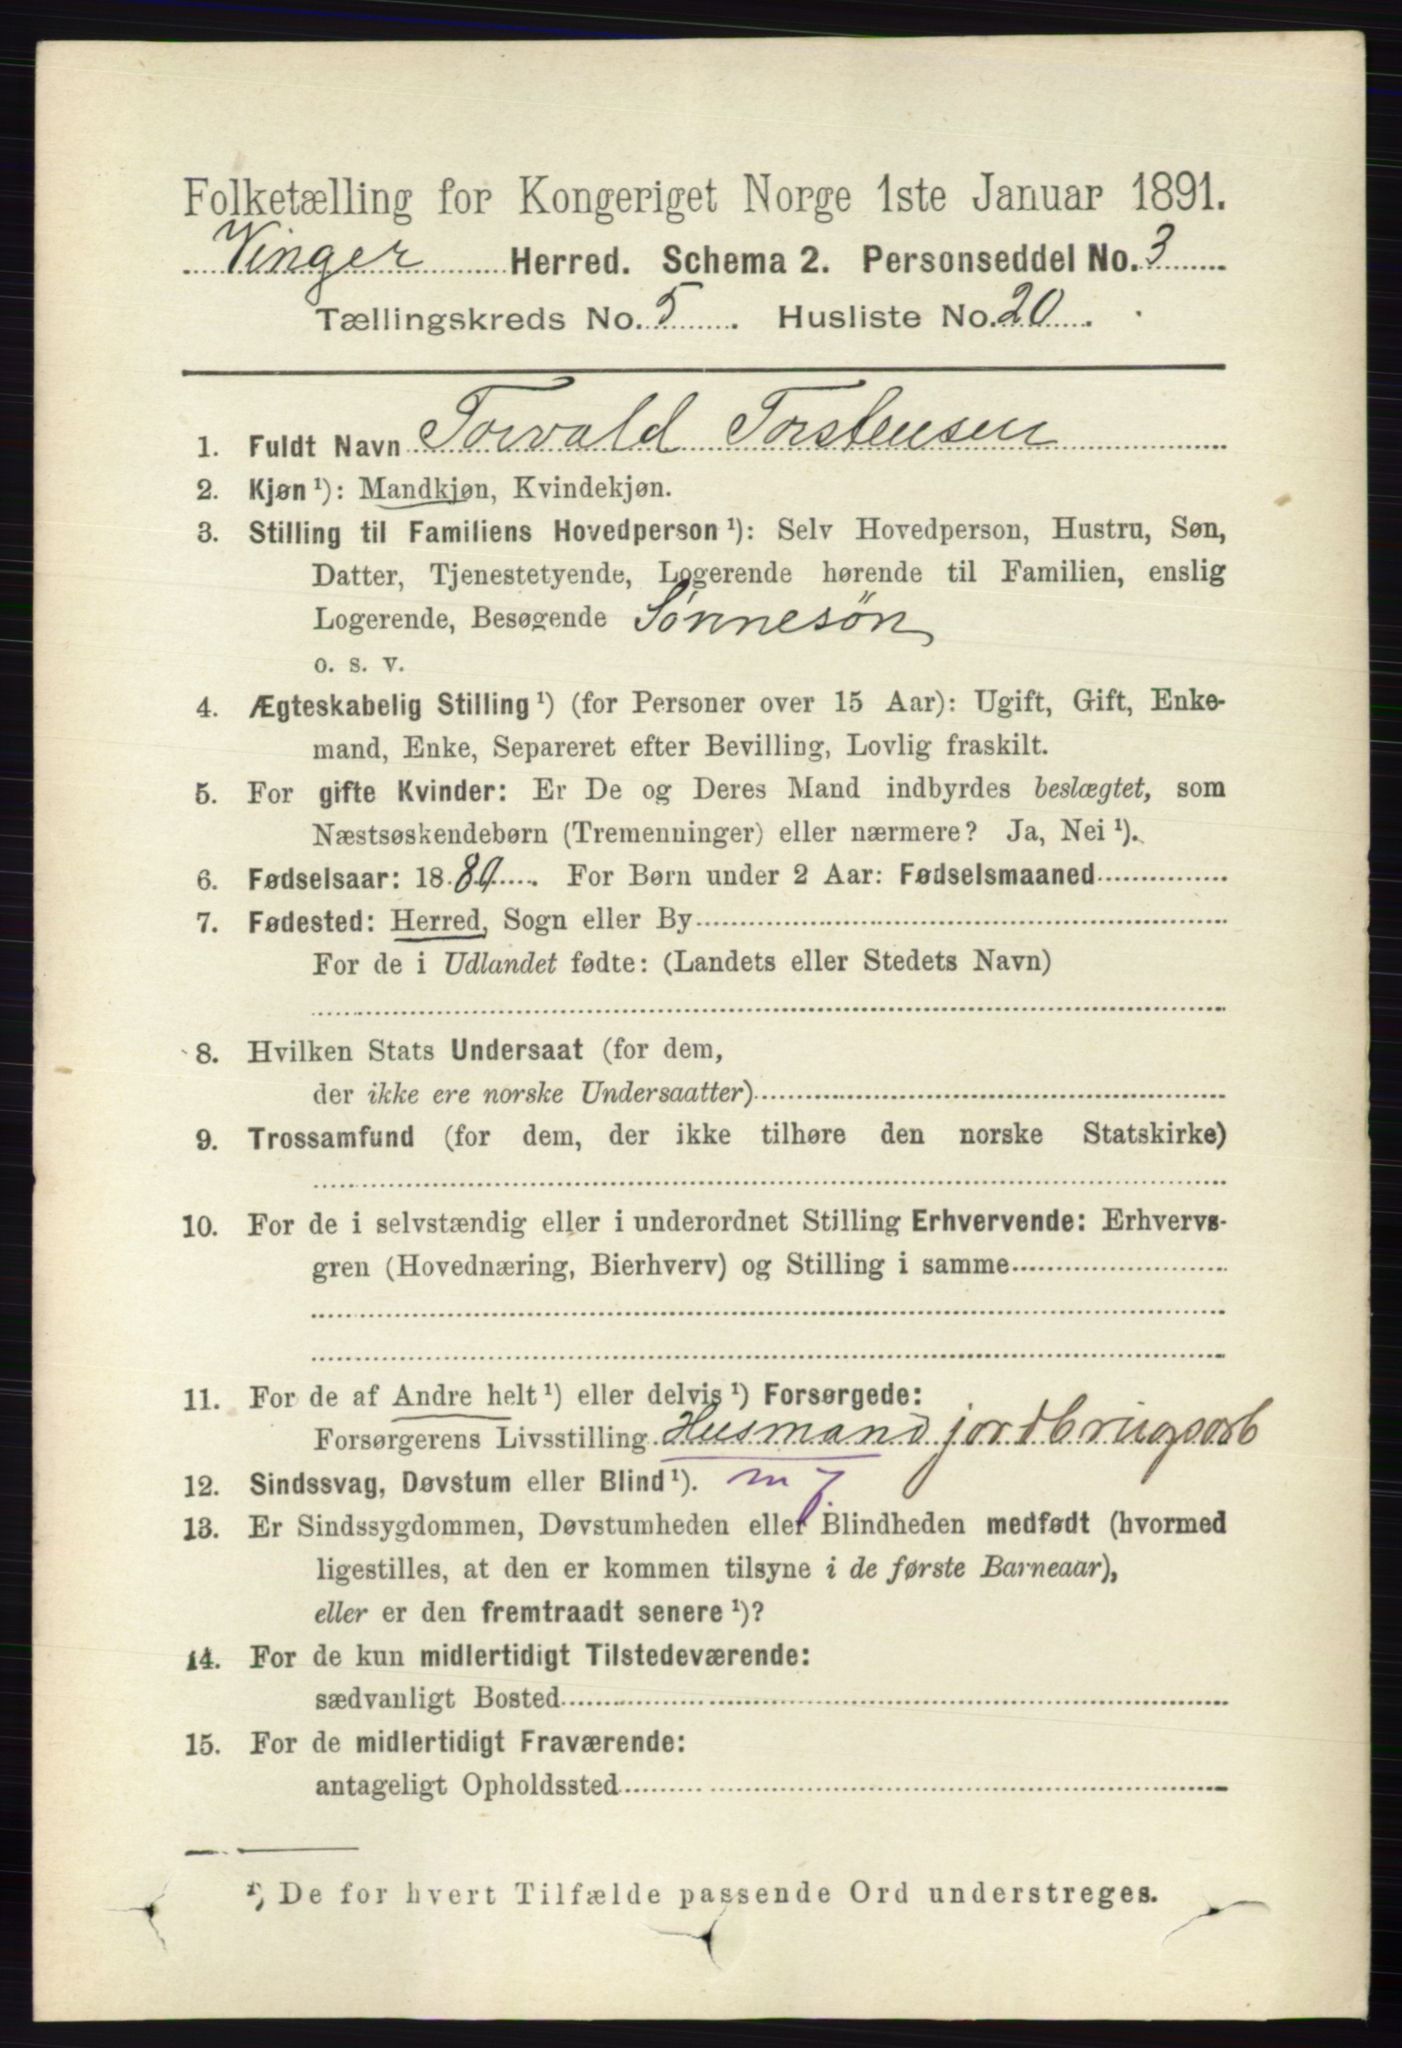 Folketælling for Kongeriget Norge 1ste Januar 1891.
Vinger Herred. Schema 2. Personseddel No. 3
Tællingskreds No. 5. Husliste No. 20.
1. Fuldt Navn Torvald Torstensen
2. Kjøn ¹): Mandkjøn, Kvindekjøn.
3. Stilling til Familiens Hovedperson ¹): Selv Hovedperson, Hustru, Søn,
Datter, Tjenestetyende, Logerende hørende til Familien, enslig
Logerende, Besøgende Sönnesön
o. s. v.
4. Ægteskabelig Stilling ¹) (for Personer over 15 Aar): Ugift, Gift, Enke-
mand, Enke, Separeret efter Bevilling, Lovlig fraskilt.
5. For gifte Kvinder: Er De og Deres Mand indbyrdes beslægtet, som
Næstsøskendebørn (Tremenninger) eller nærmere? Ja, Nei ¹).
6. Fødselsaar: 1889. For Børn under 2 Aar: Fødselsmaaned
7. Fødested: Herred, Sogn eller By
For de i Udlandet fødte: (Landets eller Stedets Navn)
8. Hvilken Stats Undersaat (for dem,
der ikke ere norske Undersaatter)
9. Trossamfund (for dem, der ikke tilhøre den norske Statskirke)
10. For de i selvstændig eller i underordnet Stilling Erhvervende: Erhvervs-
gren (Hovednæring, Bierhverv) og Stilling i samme
11. For de af Andre helt ¹) eller delvis ¹) Forsørgede:
Forsørgerens Livsstilling Husmand jordbrugsarb
12. Sindssvag, Døvstum eller Blind ¹). m j
13. Er Sindssygdommen, Døvstumheden eller Blindheden medfødt (hvormed
ligestilles, at den er kommen tilsyne i de første Barneaar),
eller er den fremtraadt senere ¹)?
14. For de kun midlertidigt Tilstedeværende:
sædvanligt Bosted
15. For de midlertidigt Fraværende:
antageligt Opholdssted
¹) De for hvert Tilfælde passende Ord understreges.